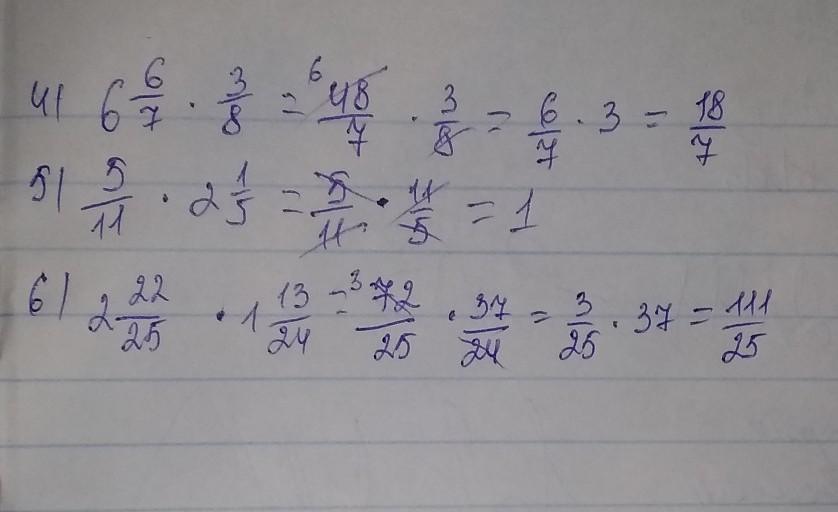 4) 6 6/7 · 3/8 = ⁶48/7 · 3/8 = 6/7 · 3 = 18/7
5) 5/11 · 2 1/5 = 5/11 · 11/5 = 1
6) 2 22/25 · 1 13/24 = ³72/25 · 37/24 = 3/25 · 37 = 111/25